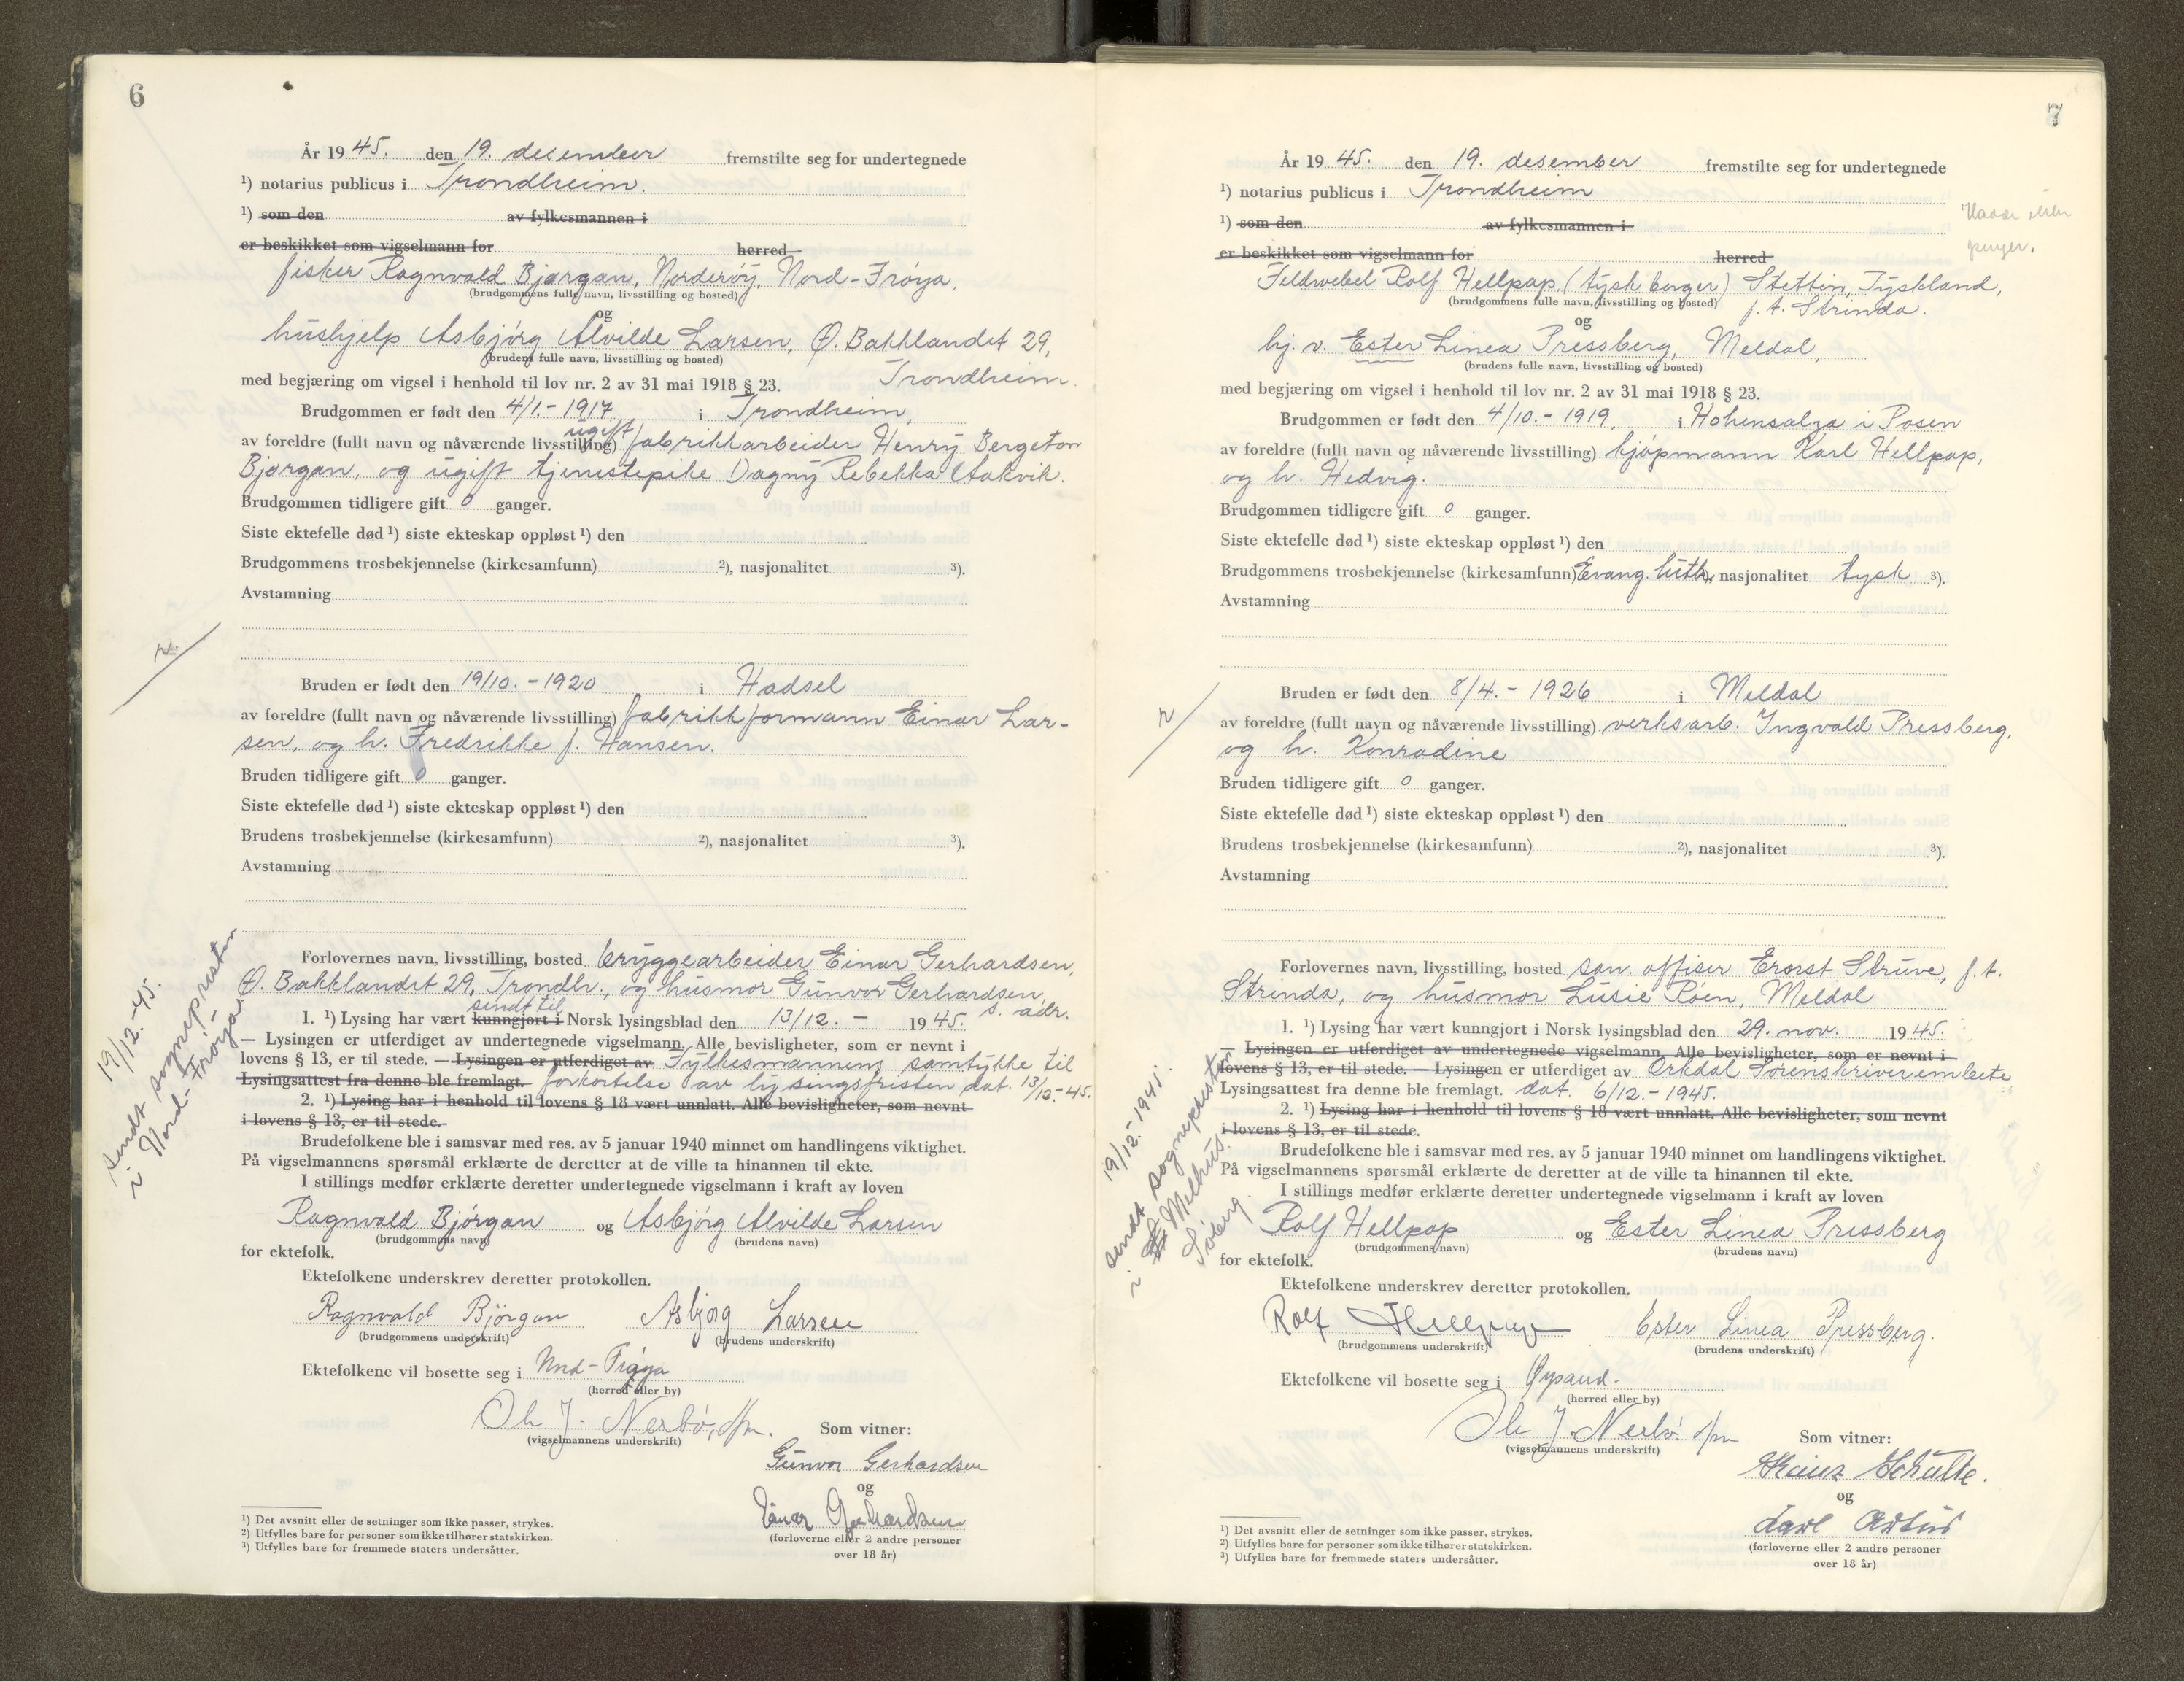 6
År 19 45. den 19. desember fremstilte seg for undertegnede
¹) notarius publicus i Trondheim.
¹) som den av fylkesmannen i
er beskikket som vigselmann for herred
fisker Ragnvald Bjørgan, Norderøy, Nord-Frøya,
(brudgommens fulle navn, livsstilling og bosted)
og
hushjelp Asbjørg Alvilde Larsen, Ø. Bakklandet 29,
(brudens fulle navn, livsstilling og bosted)
med begjæring om vigsel i henhold til lov nr. 2 av 31 mai 1918 § 23. Trondheim.
Brudgommen er født den 4/1.-1917 i Trondheim,
ugift
av foreldre (fullt navn og nåværende livsstilling) fabrikkarbeider Henry Bergeton
Bjørgan, og ugift tjenestepike Dagny Rebekka Aakvik.
Brudgommen tidligere gift 0 ganger.
Siste ektefelle død ¹) siste ekteskap oppløst ¹) den
Brudgommens trosbekjennelse (kirkesamfunn) ²), nasjonalitet ³).
Avstamning
Bruden er født den 19/10.-1920 i Hadsel
av foreldre (fullt navn og nåværende livsstilling) fabrikkformann Einar Lar-
sen, og h. Fredrikke f. Hansen.
Bruden tidligere gift 0 ganger.
Siste ektefelle død ¹) siste ekteskap oppløst ¹) den
Brudens trosbekjennelse (kirkesamfunn) ²), nasjonalitet ³).
Avstamning
Forlovernes navn, livsstilling, bosted bryggearbeider Einar Gerhardsen,
Ø. Bakklandet 29, Trondh., og husmor Gunvor Gerhardsen,
sendt til s. adr.
1. ¹) Lysing har vært kunngjort i Norsk lysingsblad den 13/12. - 1945.
— Lysingen er utferdiget av undertegnede vigselmann. Alle bevisligheter, som er nevnt i
lovens § 13, er til stede. — Lysingen er utferdiget av Fylkesmannens samtykke til
Lysingsattest fra denne ble fremlagt. forkortelse av lysingsfristen dat. 13/12.-45.
2. ¹) Lysing har i henhold til lovens § 18 vært unnlatt. Alle bevisligheter, som nevnt
i lovens § 13, er til stede.
Brudefolkene ble i samsvar med res. av 5 januar 1940 minnet om handlingens viktighet.
På vigselmannens spørsmål erklærte de deretter at de ville ta hinannen til ekte.
I stillings medfør erklærte deretter undertegnede vigselmann i kraft av loven
Ragnvald Bjørgan og Asbjørg Alvilde Larsen
(brudgommens navn) (brudens navn)
for ektefolk.
Ektefolkene underskrev deretter protokollen.
Ragnvald Bjørgan Asbjørg Larsen
(brudgommens underskrift) (brudens underskrift)
Ektefolkene vil bosette seg i Nord-Frøya
(herred eller by)
Ole J. Nerbø, d/m.
(vigselmannens underskrift) Som vitner:
Gunvor Gerhardsen
og
Einar Gerhardsen
(forloverne eller 2 andre personer
over 18 år)
¹) Det avsnitt eller de setninger som ikke passer, strykes.
²) Utfylles bare for personer som ikke tilhører statskirken.
³) Utfylles bare for fremmede staters undersåtter.
19/12.-45.
sendt sognepresten
i Nord-Frøya.
7
År 19 45. den 19. desember fremstilte seg for undertegnede
¹) notarius publicus i Trondheim
¹) som den av fylkesmannen i
er beskikket som vigselmann for herred
Feldwebel Rolf Hellpap (tysk borger) Stettin, Tyskland,
(brudgommens fulle navn, livsstilling og bosted) f. t. Strinda.
og
hj. v. Ester Linea Pressberg, Meldal,
(brudens fulle navn, livsstilling og bosted)
med begjæring om vigsel i henhold til lov nr. 2 av 31 mai 1918 § 23.
Brudgommen er født den 4/10.-1919. i Hohensalza i Posen
av foreldre (fullt navn og nåværende livsstilling) kjøpmann Karl Hellpap,
og h. Hedvig.
Brudgommen tidligere gift 0 ganger.
Siste ektefelle død ¹) siste ekteskap oppløst ¹) den
Brudgommens trosbekjennelse (kirkesamfunn) Evang. luth., nasjonalitet tysk ³).
Avstamning
Bruden er født den 8/4.-1926 i Meldal
av foreldre (fullt navn og nåværende livsstilling) verksarb. Ingvald Pressberg,
og h. Konradine
Bruden tidligere gift 0 ganger.
Siste ektefelle død ¹) siste ekteskap oppløst ¹) den
Brudens trosbekjennelse (kirkesamfunn) ²), nasjonalitet ³).
Avstamning
Forlovernes navn, livsstilling, bosted san. offiser Ernst Struve, f. t.
Strinda, og husmor Lusie Røen, Meldal
1. ¹) Lysing har vært kunngjort i Norsk lysingsblad den 29. nov. 1945.
— Lysingen er utferdiget av undertegnede vigselmann. Alle bevisligheter, som er nevnt i
lovens § 13, er til stede. — Lysingen er utferdiget av Orkdal Sorenskriverembete
Lysingsattest fra denne ble fremlagt. dat. 6/12.-1945.
2. ¹) Lysing har i henhold til lovens § 18 vært unnlatt. Alle bevisligheter, som nevnt
i lovens § 13, er til stede.
Brudefolkene ble i samsvar med res. av 5 januar 1940 minnet om handlingens viktighet.
På vigselmannens spørsmål erklærte de deretter at de ville ta hinannen til ekte.
I stillings medfør erklærte deretter undertegnede vigselmann i kraft av loven
Rolf Hellpap og Ester Linea Pressberg
(brudgommens navn) (brudens navn)
for ektefolk.
Ektefolkene underskrev deretter protokollen.
Rolf Hellpap Ester Linea Pressberg.
(brudgommens underskrift) (brudens underskrift)
Ektefolkene vil bosette seg i Øysand.
(herred eller by)
Ole J. Nerbø d/m
(vigselmannens underskrift) Som vitner:
Heinz Schulte.
og
Karl Artus
(forloverne eller 2 andre personer
over 18 år)
¹) Det avsnitt eller de setninger som ikke passer, strykes.
²) Utfylles bare for personer som ikke tilhører statskirken.
³) Utfylles bare for fremmede staters undersåtter.
19/12.-1945.
sendt sognepresten
i Melhus
Søberg.